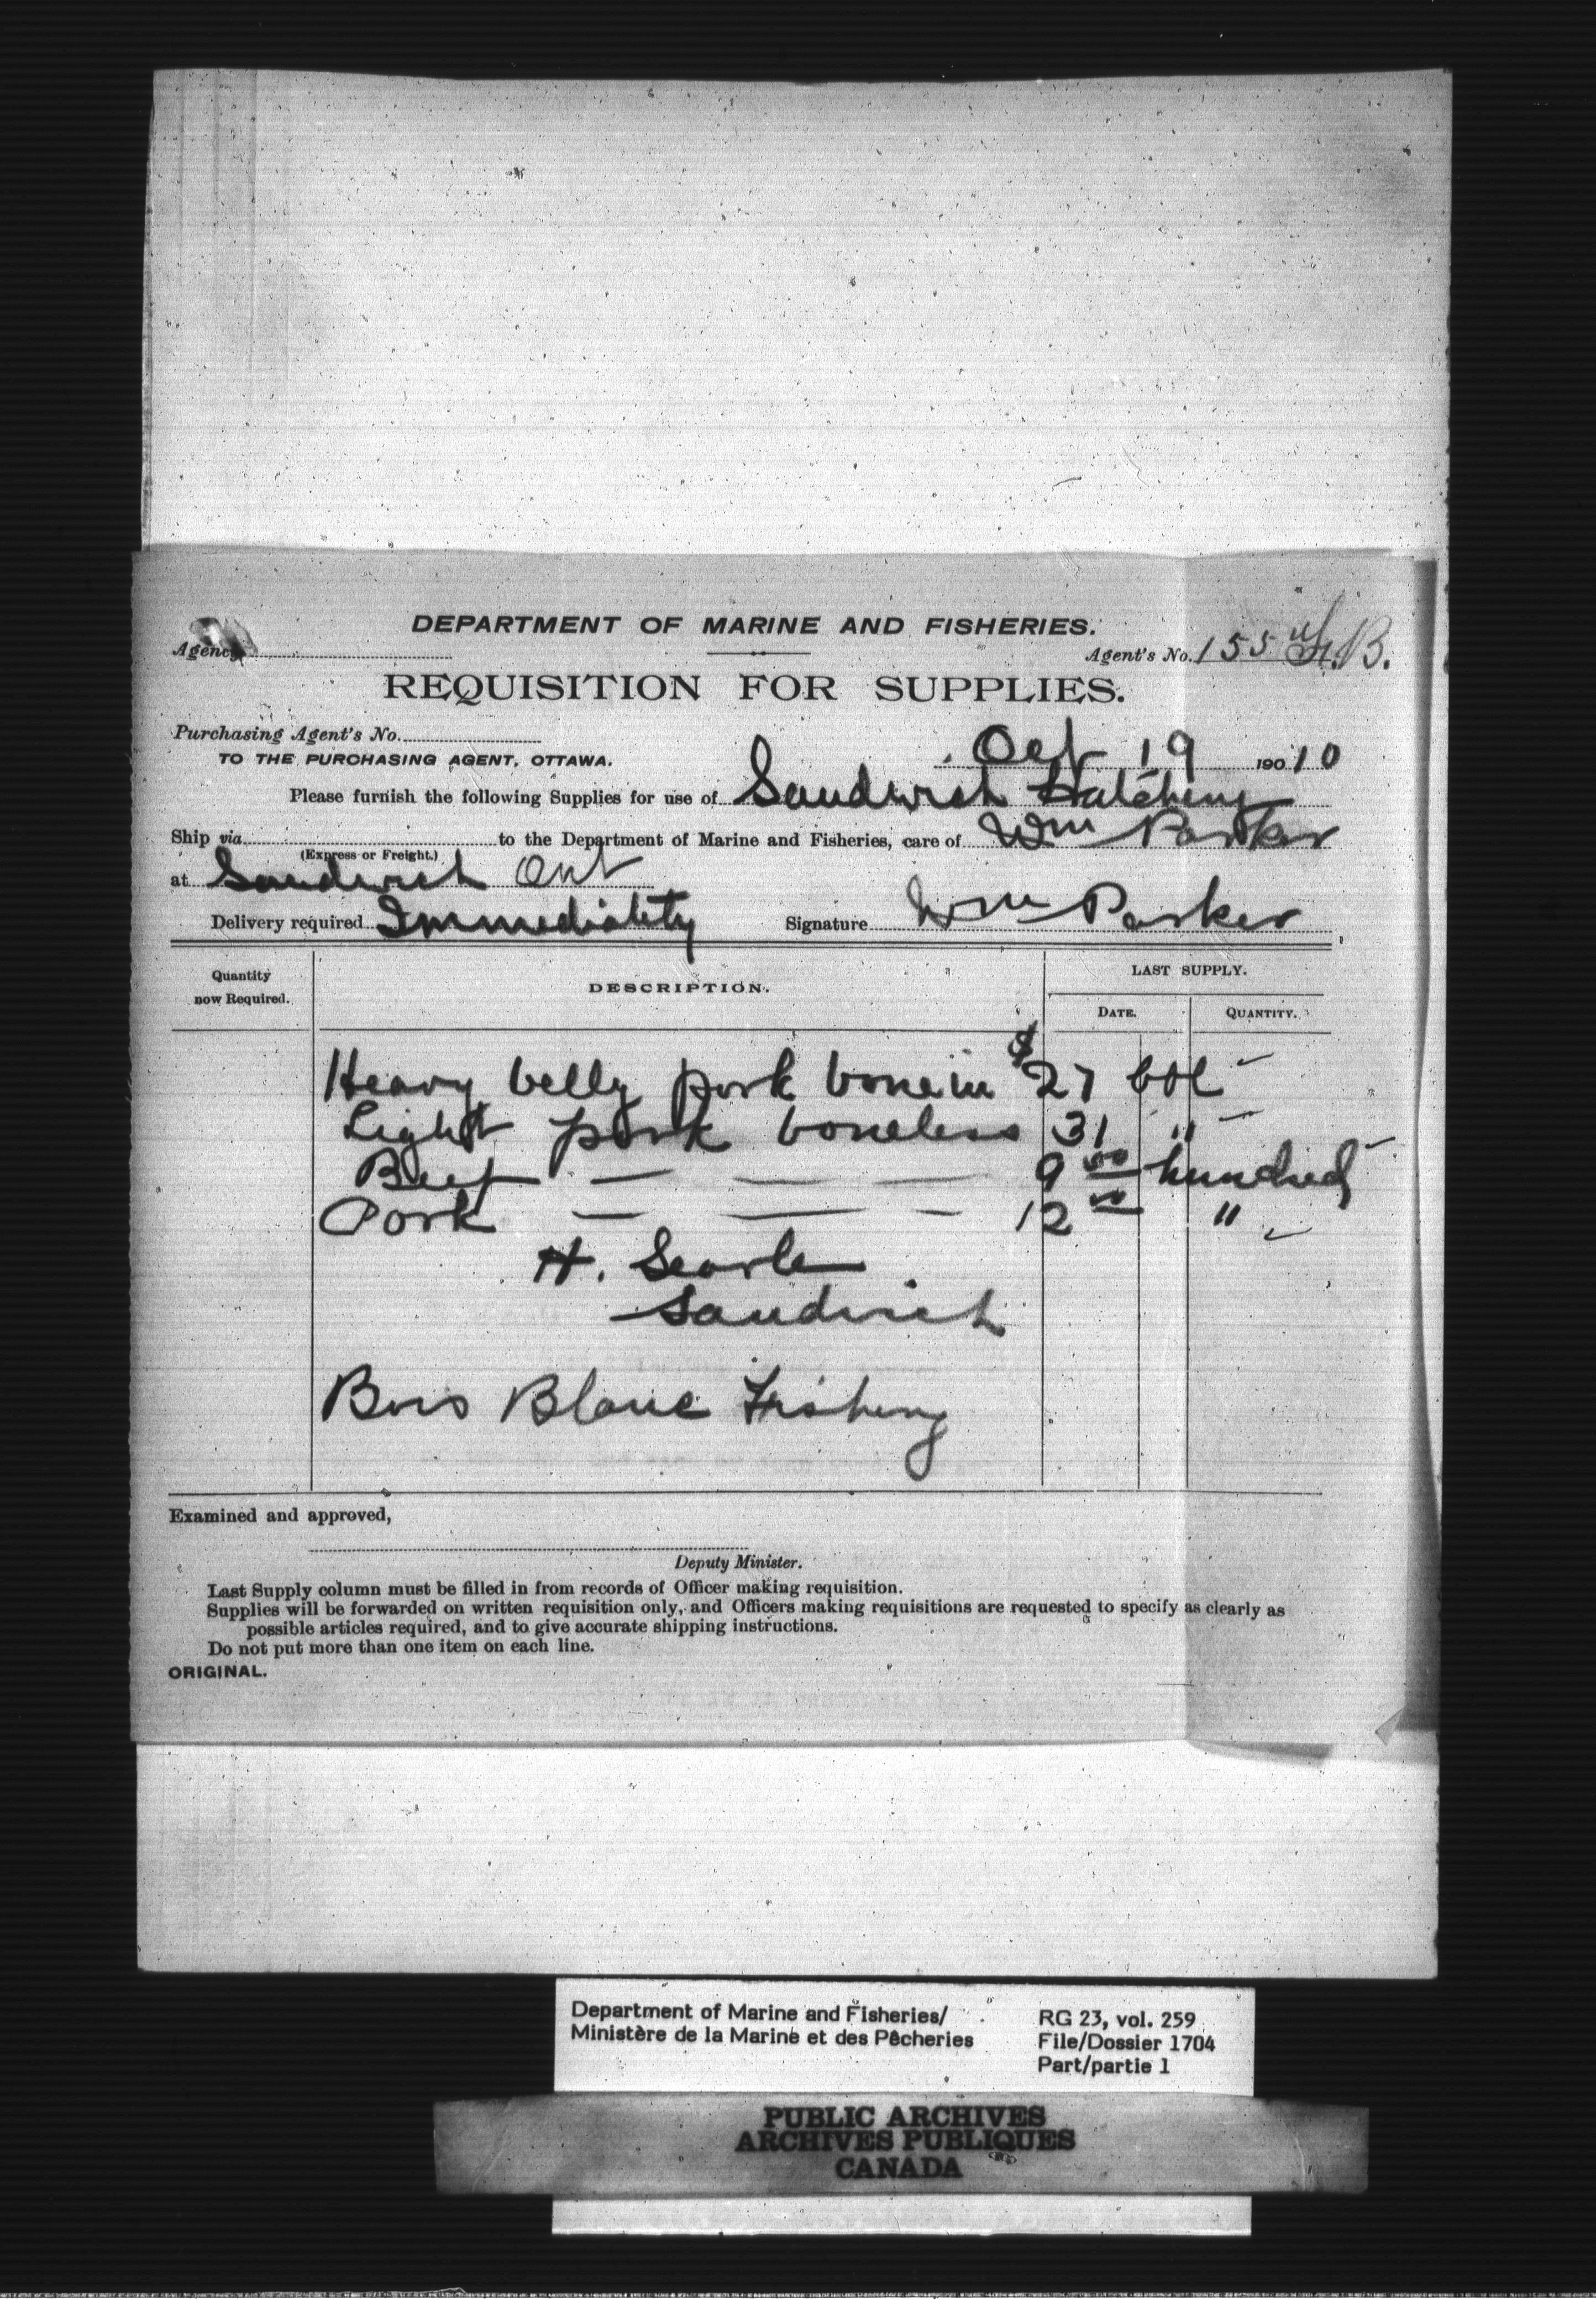 DEPARTMENT OF MARINE AND FISHERIES.
Agency
Agent's No. 155 B.
REQUISITION FOR SUPPLIES.
Purchasing Agent's No.
Oct 19 190 10
TO THE PURCHASING AGENT, OTTAWA.
Please furnish the following Supplies for use of Sandwich Hatchery
Ship via to the Department of Marine and Fisheries, care of Wm Parker
(Express or Freight.)
at Sandwich Ont
Delivery required Immediatety Signature Wm Parker
Quantity now Required.
DESCRIPTION.
LAST SUPPLY.
DATE. QUANTITY.
Heavy belly pork bone in $27 bbl
Light pork boneless 31 "
Beef — — — 9 00 hundred
Pork — — — 12 00 "
H. Searle
Sandwich
Bois Blanc Fishery
Examined and approved,
Deputy Minister.
Last Supply column must be filled in from records of Officer making requisition.
Supplies will be forwarded on written requisition only, and Officers making requisitions are requested to specify as clearly as
possible articles required, and to give accurate shipping instructions.
Do not put more than one item on each line.
ORIGINAL.
Department of Marine and Fisheries/
Ministère de la Marine et des Pêcheries
RG 23, vol. 259
File/Dossier 1704
Part/partie 1
PUBLIC ARCHIVES
ARCHIVES PUBLIQUES
CANADA